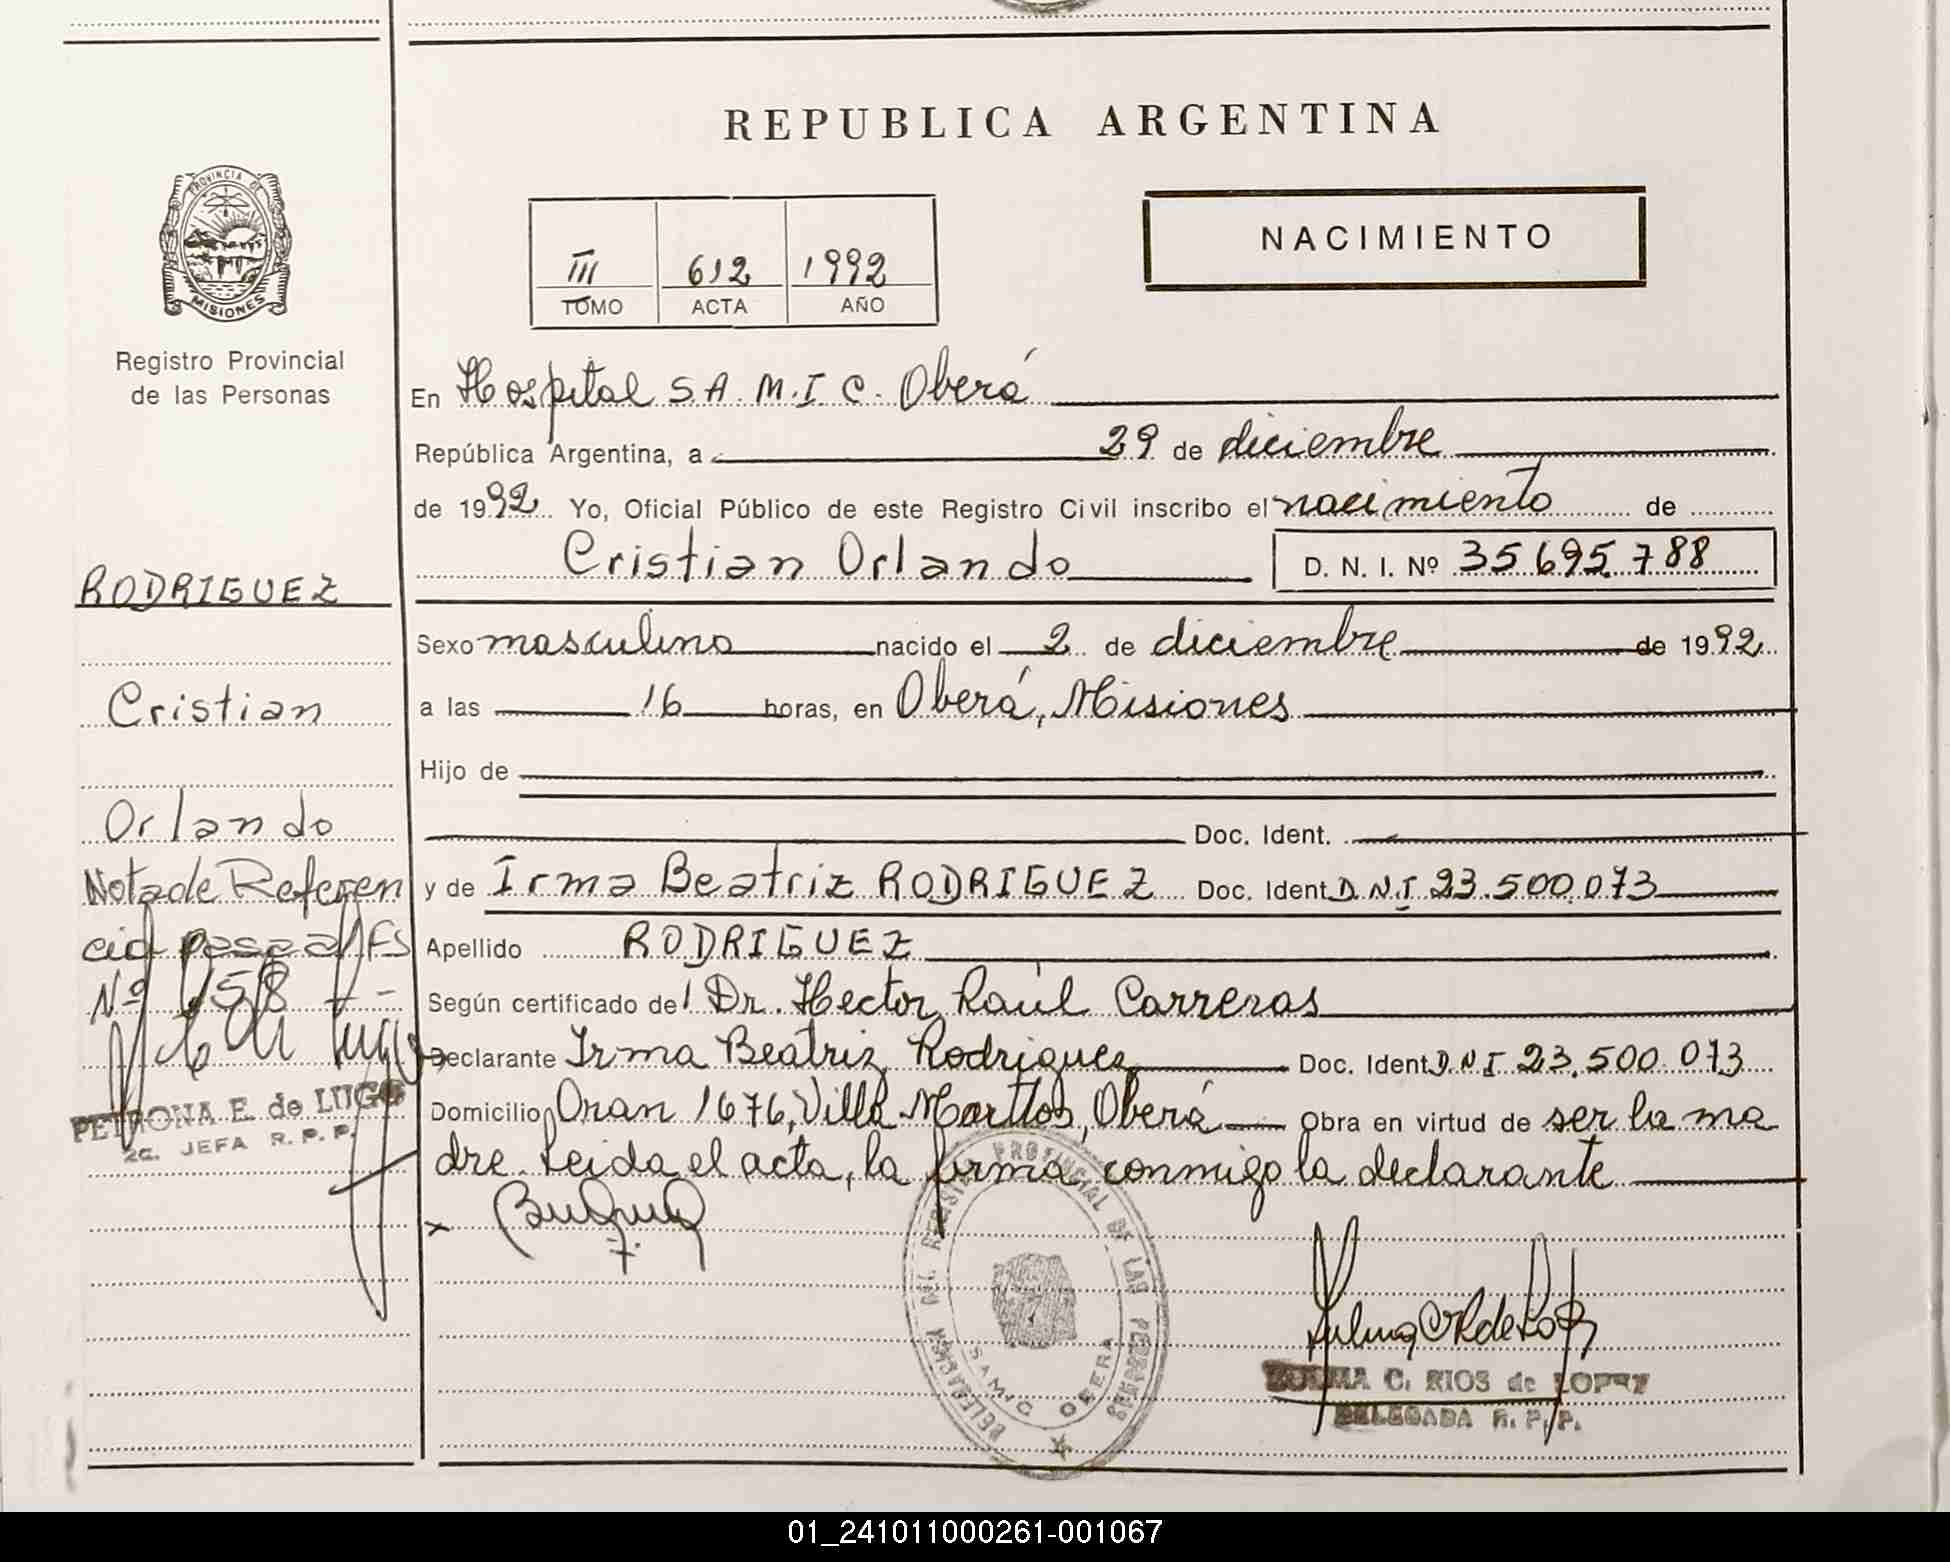 REPUBLICA ARGENTINA
PROVINCIA DE
MISIONES
Registro Provincial
de las Personas
NACIMIENTO
III 612 1992
TOMO ACTA AÑO
En Hospital S.A.M.I.C. Oberá
República Argentina, a 29 de diciembre
de 1992 Yo, Oficial Público de este Registro Civil inscribo el nacimiento de
Cristian Orlando D. N. I. Nº 35695.788
RODRIGUEZ
Sexo masculino nacido el 2 de diciembre de 1992
Cristian
a las 16 horas, en Oberá, Misiones
Hijo de
Orlando
Doc. Ident.
Nota de Referen
cia pasa al Fs
Nº 158
y de Irma Beatriz RODRIGUEZ Doc. Ident D.N.I 23.500.073
Apellido RODRIGUEZ
Según certificado del Dr. Hector Raúl Carreras
Declarante Irma Beatriz Rodriguez Doc. Ident D.N.I 23.500.073
PETRONA E. de LUGO
2a. JEFA R. P. P.
Domicilio Oran 1676, Villa Oberá Obra en virtud de ser la ma
dre. Leida el acta, la firma conmigo la declarante
DELEGACION DEL REGISTRO PROVINCIAL DE LAS PERSONAS
SAMIC OBERA
ZULMA C. RIOS de LOPEZ
DELEGADA R. P. P.
01_241011000261-001067